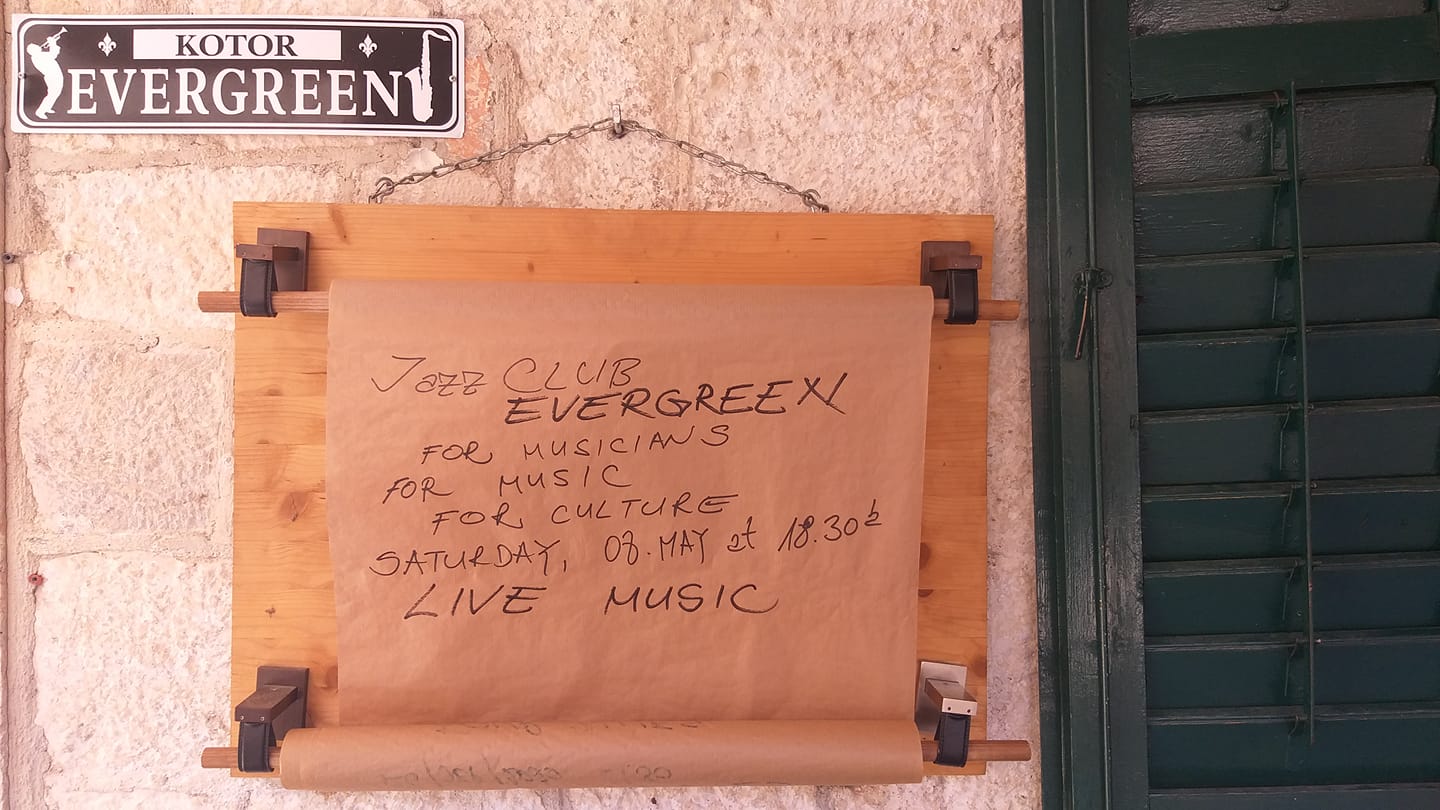 KOTOR
EVERGREEN
Jazz CLUB
EVERGREEN
FOR MUSICIANS
FOR MUSIC
FOR CULTURE
SATURDAY, 08. MAY at 18.30 h
LIVE MUSIC